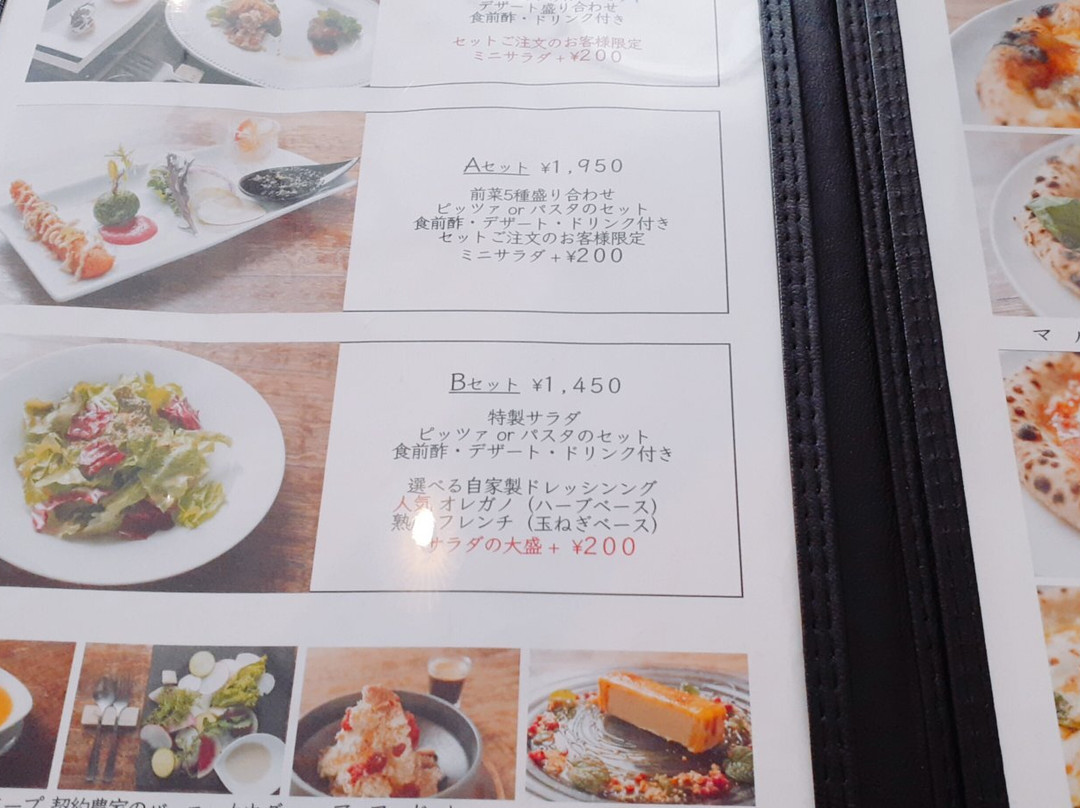 デザート盛り合わせ
食前酢・ドリンク付き
セットご注文のお客様限定
ミニサラダ+¥200
Aセット ¥1,950
前菜5種盛り合わせ
ピッツァ or パスタのセット
食前酢・デザート・ドリンク付き
セットご注文のお客様限定
ミニサラダ+¥200
Bセット ¥1,450
特製サラダ
ピッツァ or パスタのセット
食前酢・デザート・ドリンク付き
選べる自家製ドレッシンング
人気 オレガノ (ハーブベース)
熟 フレンチ (玉ねぎベース)
サラダの大盛+ ¥200
契約農家の
マ